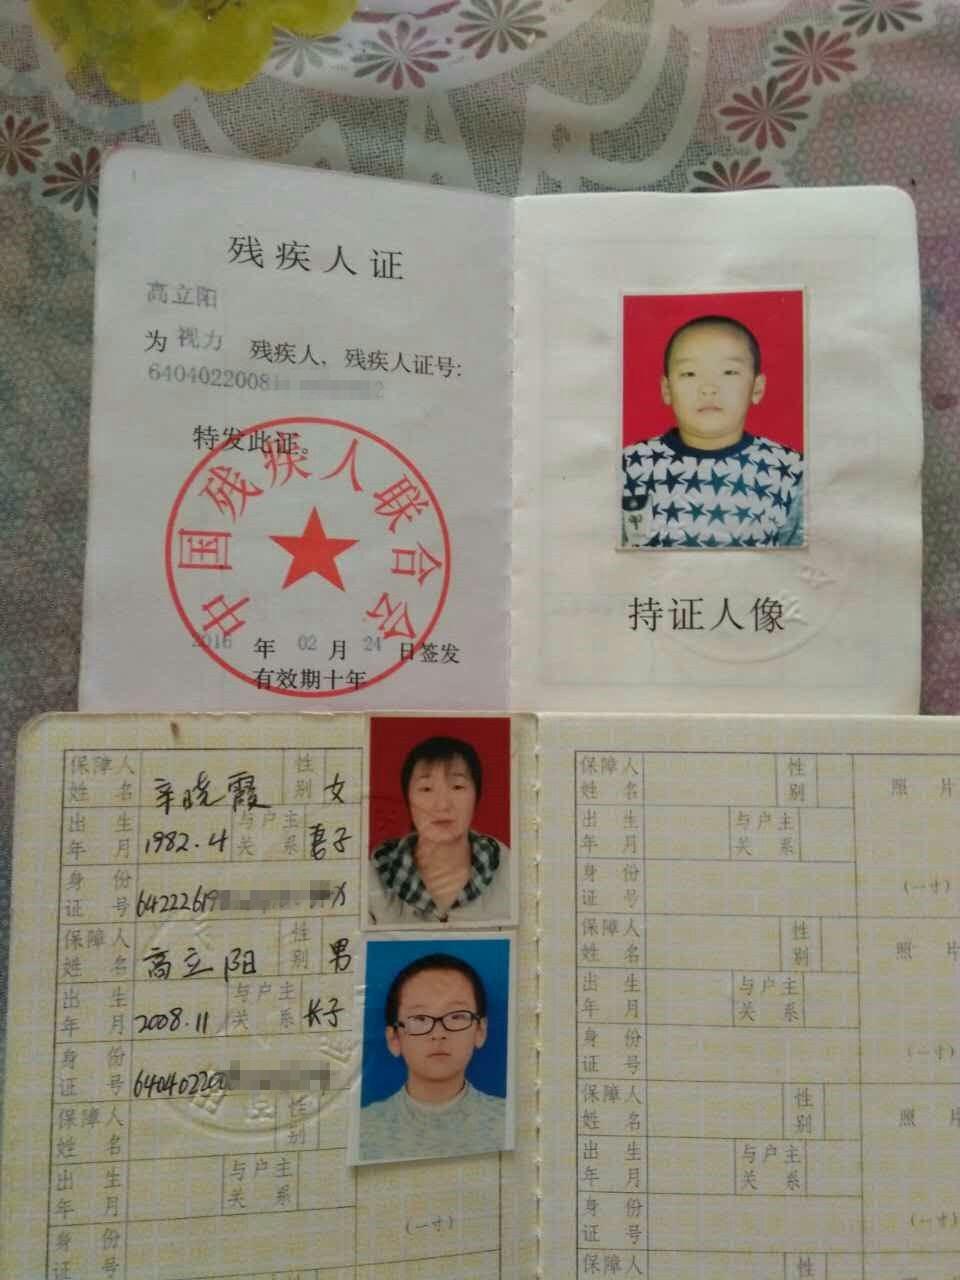 残疾人证
高立阳
为 视力 残疾人，残疾人证号:
640402200811
2
特发此证。
中国残疾人联合会
2016 年 02 月 24 日签发
有效期十年
持证人像
保障人姓名 辛晓霞 性别 女
出生年月 1982.4 与户主关系 妻子
身份证号 64222619 X
保障人姓名 高立阳 性别 男
出生年月 2008.11 与户主关系 长子
身份证号 640402200
保障人姓名 性别
出生年月 与户主关系
身份证号
(一寸)
保障人姓名 性别 照片
出生年月 与户主关系
身份证号 (一寸)
保障人姓名 性别 照片
出生年月 与户主关系
身份证号 (一寸)
保障人姓名 性别 照片
出生年月 与户主关系
身份证号 (一寸)
保障人 性